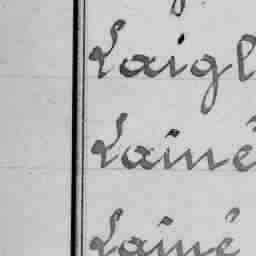 Laigl
Lainé
Lainé